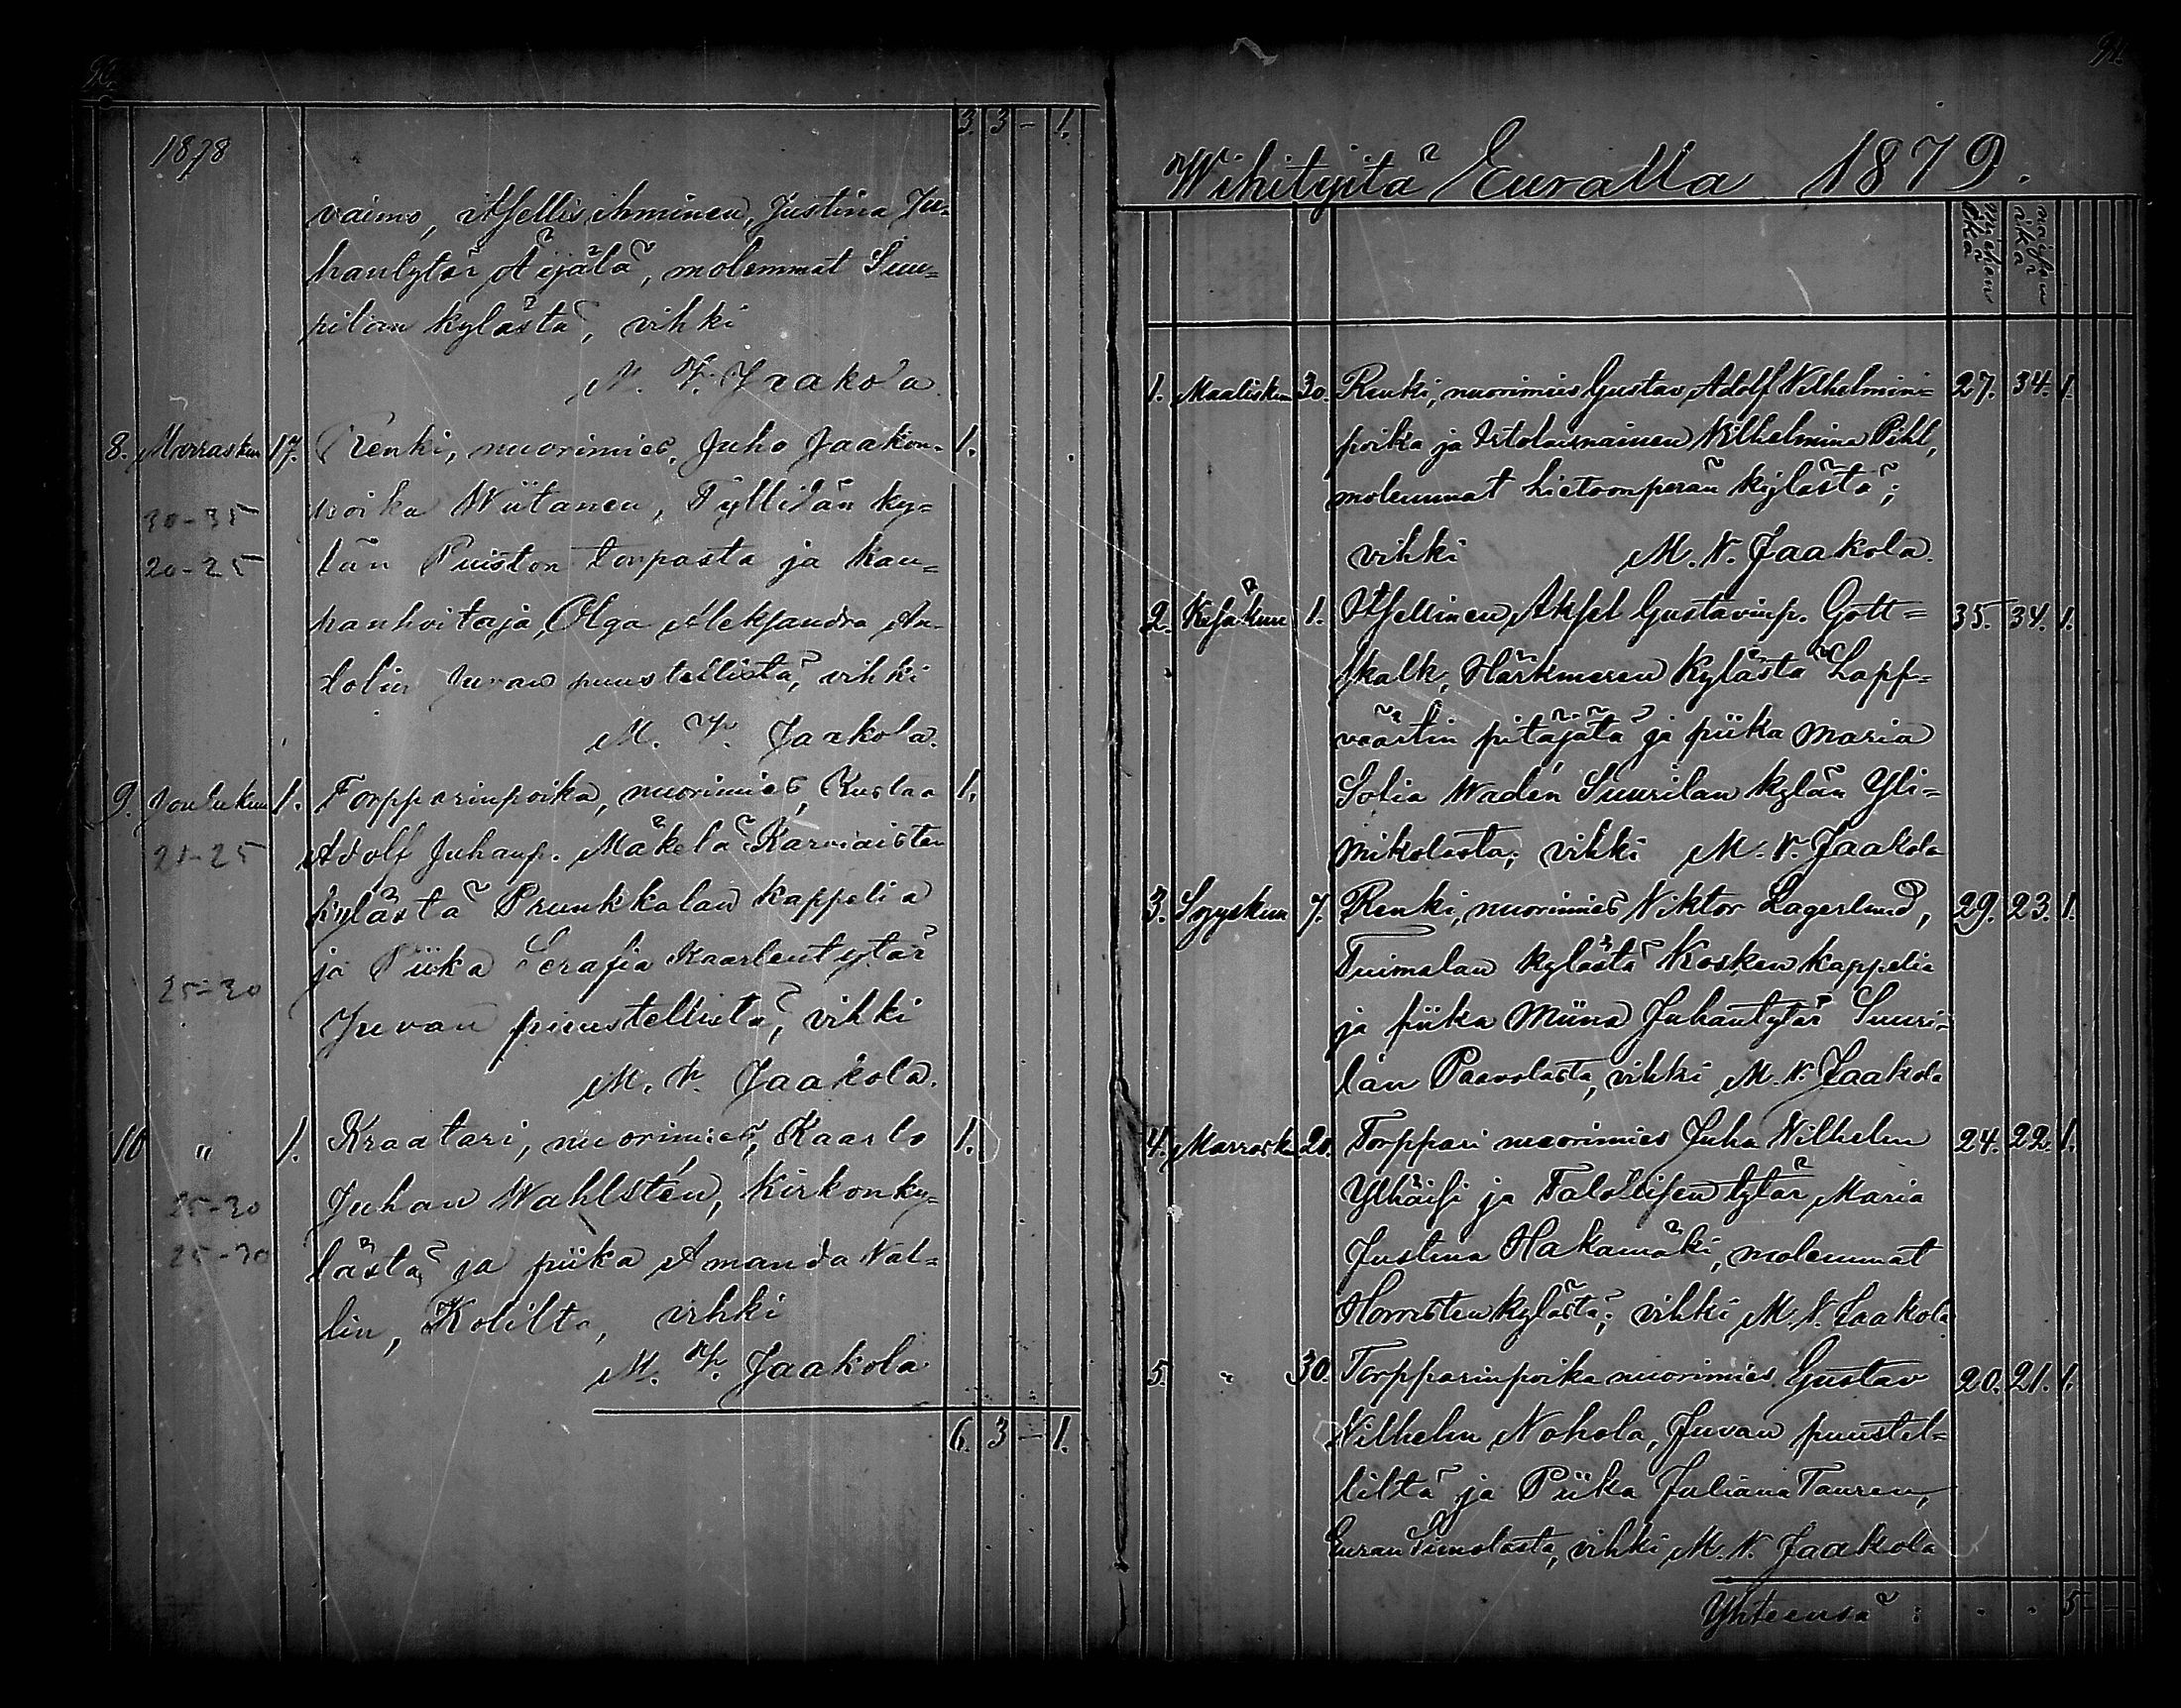 3. 3 - 1.
1878
vaimo, itsellis ihminen, Justina Ju-
hantytär Äijälä, molemmat Suu-
pilan kylästä, vihki
M. V. Jaakola.
8. Marraskuu 17. Renki, nuorimies, Juho Jaakon- 1.
poika Wiitanen, Tyllilän ky-
30-35
20-25 län Puiston torpasta ja kau-
panhoitaja, Olga Aleksandra An-
tolin Juvan puustellista, vihki
M. V. Jaakola.
9. Joulukuu 1. Torpparinpoika, nuorimies, Kustaa 1.
21-25 Adolf Juhanp. Mäkelä Karviaisten
kylästä Prunkkalan kappelia
ja Piika Serafia Kaarlentytär
25-30
Juvan puustellista, vihki
M. V. Jaakola.
10 " 1. Kraatari, nuorimies, Kaarlo 1.
25-30 Juhan Wahlstén, Kirkonky-
25-30 lästä, ja piika Amanda Val-
lin, Kolilta, vihki
M. V. Jaakola.
6. 3 - 1.
Wihityitä Euralla 1879.
Miehen ikä
Vaimon ikä
1. Maaliskuu 30. Renki, nuorimies Gustav Adolf Wilhelmin- 27. 34. 1.
poika ja Irtolaisnainen Wilhelmina Pihl,
molemmat hietoonperän kylästä;
vihki M. V. Jaakola.
2. Kesäkuu 1. Itsellinen Aksel Gustavinp. Gott= 35. 34. 1.
skalk, Härkmeren Kylästä Lapp=
väärtin pitäjätä ja piika Maria
Sofia Wadén Suurilan kylän Yli=
mikolasta; vihki M. V. Jaakola
3. Syyskuu 7. Renki, nuorimies Viktor Lagerlund, 29. 23. 1.
Tuimalan kylästä Kosken kappelia
ja piika Miina Juhantytär Suuri-
lan Paavolasta, vihki M. V. Jaakola
4. Marrask. 20. Torppari nuorimies Juha Vilhelm 24. 22. 1.
Ylhäisi ja Talollisen tytär Maria
Justina Hakamäki, molemmat
Honnisten kylästä; vihki M. V. Jaakola
5. " 30. Torpparinpoika nuorimies Gustav 20. 21. 1.
Vilhelm Nohola, Juvan puustel=
liltä ja Piika Juliana Tauren,
Euran Simolasta, vihki M. V. Jaakola
Yhteensä: . . 5 - -